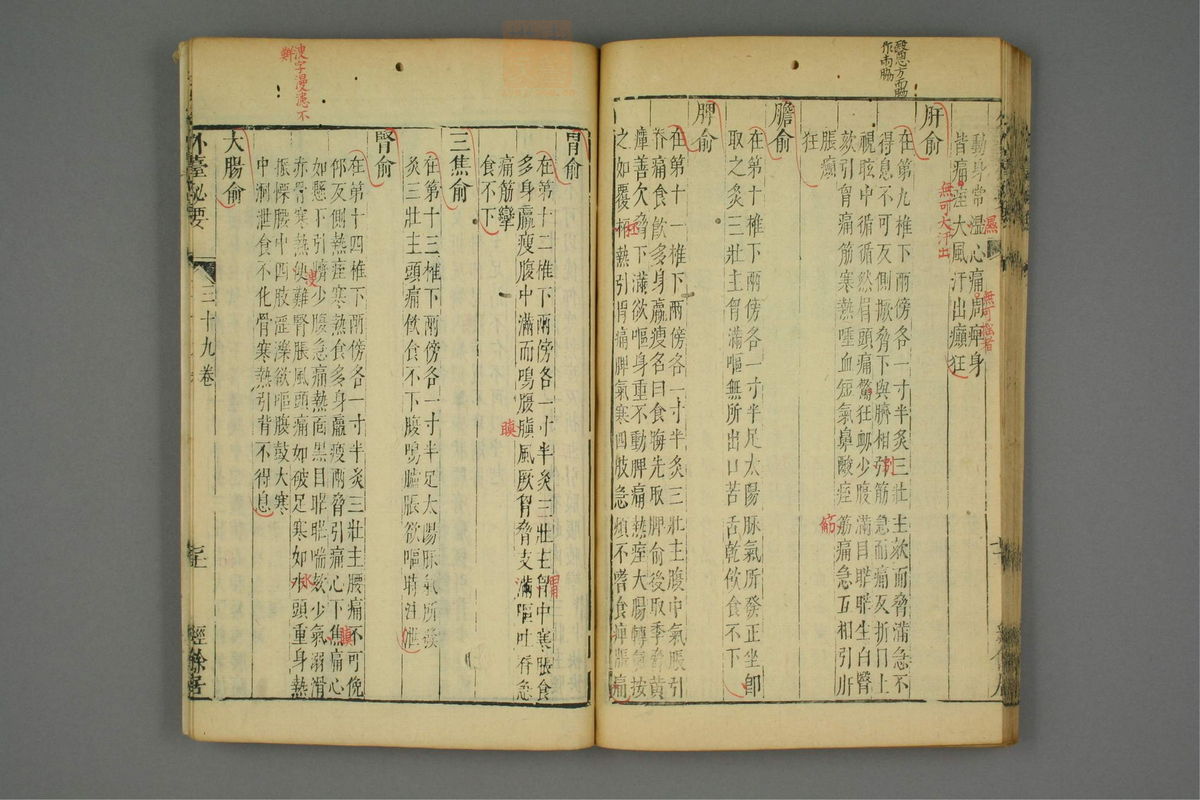 醫心方兩脇
作兩脇
動身常濕心痛周痹身
皆痛痓大風汗出癲狂
肝俞
在第九椎下兩傍各一寸半灸三壯主欬而脅滿急不
得息不可反側撅脅下與臍相引筋急而痛反折目上
視眩中循循然眉頭痛驚狂衄少腹滿目䀮䀮生白瞖
欬引胷痛筋寒熱唾血短氣鼻酸痓筋痛急互相引肝
脹癲
狂
膽俞
在第十椎下兩傍各一寸半足太陽脉氣所發正坐
取之灸三壯主胷滿嘔無所出口苦舌乾飲食不下
脾俞
在第十一椎下兩傍各一寸半灸三壯主腹中氣脹引
脊痛食飲多身羸瘦名曰食㑊先取脾俞後取季脅黃
癉善欠脅下滿欲嘔身重不動脾痛熱痓大腸轉氣按
之如覆杯熱引胃痛脾氣寒四肢急煩不嗜食痹脹痛
無可大汗出
胃俞
在第十二椎下兩傍各一寸半灸三壯主胃中寒脹食
多身羸瘦腹中滿而鳴腹䐜風厥胷脅支滿嘔吐脊急
痛筋攣
食不下
三焦俞
在第十三椎下兩傍各一寸半足太陽脉氣所發
灸三壯主頭痛飲食不下腹鳴臚脹欲嘔時注泄
腎俞
在第十四椎下兩傍各一寸半灸三壯主腰痛不可俛
仰反側熱痓寒熱食多身羸瘦兩脅引痛心下焦痛心
如懸下引臍少腹急痛熱面黑目䀮䀮喘欬少氣溺濁
赤骨寒熱便難腎脹風頭痛如破足寒如水頭重身熱
振慄腰中四肢淫濼欲嘔腹鼓大寒
中洞泄食不化骨寒熱引背不得息
大腸俞
外臺秘要
三十九卷
經餘居
溲字漫漶不
鮮